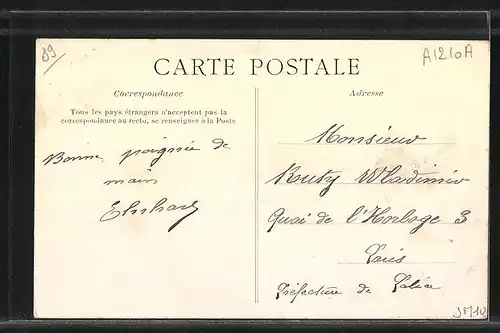 89
A1210A
CARTE POSTALE
Correspondance
Adresse
Tous les pays étrangers n'acceptent pas la
correspondance au recto, se renseigner à la Poste
Bonne poignée de
main
Monsieur
Wladimir
Quai de l'Horloge 3
Paris
Préfecture de Police